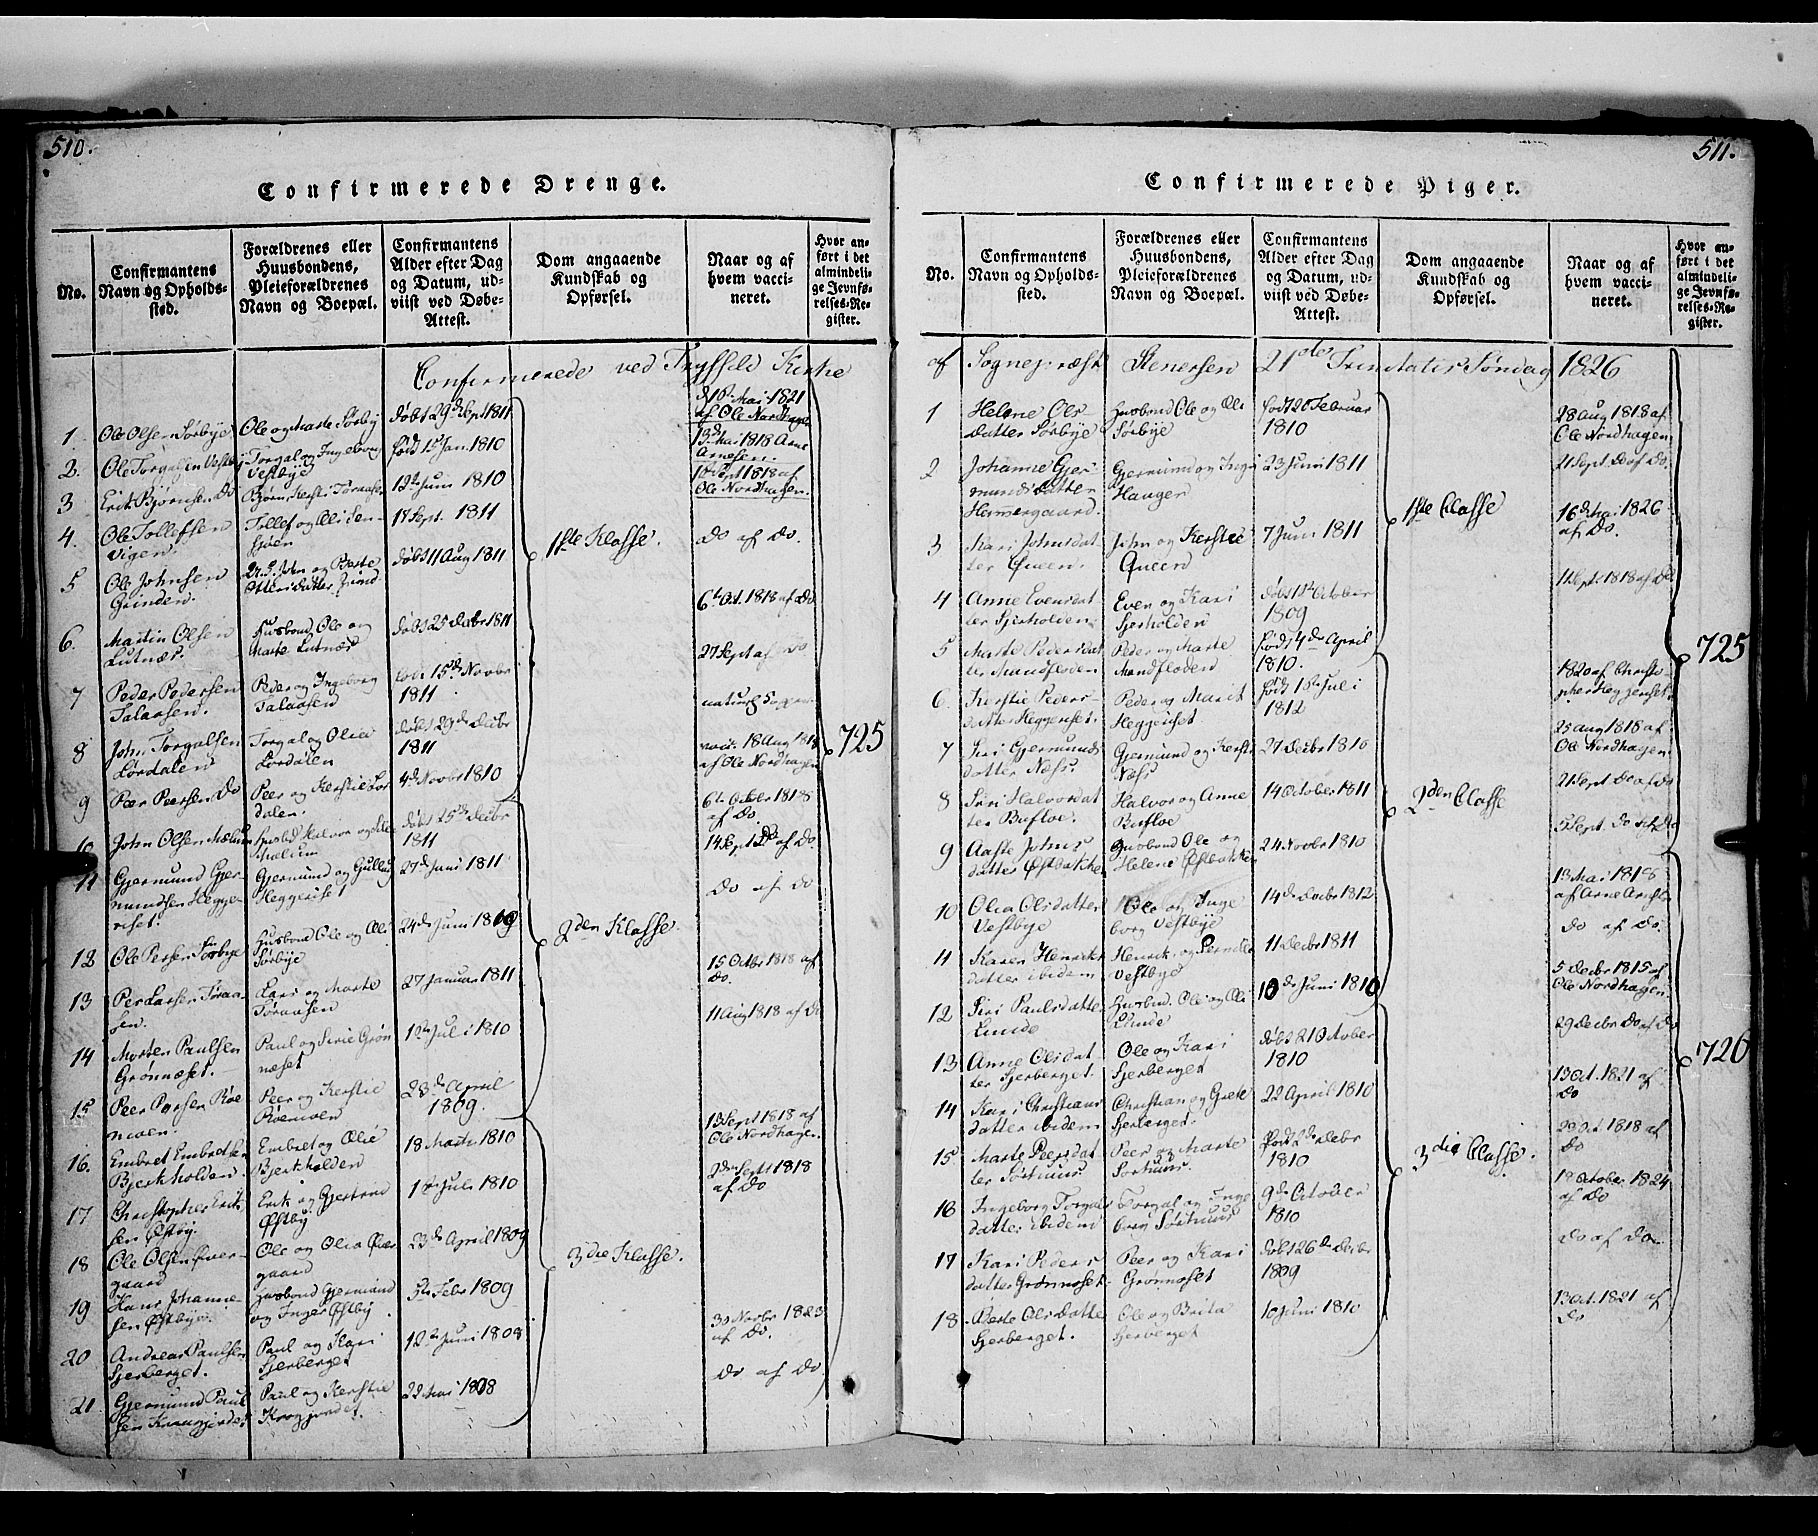 510.
Confirmerede Drenge.
No.
Confirmantens Navn og Opholdssted.
Forældrenes eller Huusbondens, Pleieforældrenes Navn og Boepæl.
Confirmantens Alder efter Dag og Datum, udviist ved Døbe-Attest.
Dom angaaende Kundskab og Opførsel.
Naar og af hvem vaccineret.
Hvor anført i det almindelige Jevnførelses-Register.
Confirmerede ved Trysseld Kirke
1. Ole Olsen Sørbye Ole og Marte Sørby døbt 29de Sept 1811 16 Mai 1821 af Ole Nordhagen
2. Ole Torgalsen Vestby Torgal og Ingeborg Vestbye født 1st Jan. 1810 13de Mai 1818 Arne Arnesen.
3 Erik Bjørnsen Do Bjørn Kersti Tøraasen 12te Juni 1810 10de Sept 1818 af Ole Nordhagen.
4. Ole Tollefsen Vigen Tollef og Oli Sensjøen 17 Sept. 1811 Do af Do.
1ste Klasse.
5 Ole Johnsen Grinden. John og Berte Ottersdatter Grind døbt 11 Aug 1811 6te Oct. 1818 af Do
6. Martin Olsen Lutnæs. Husbond Ole og Marte Lutnæs døbt 25 Decbr 1811 27 Sept af Do
7 Peder Pedersen Talaasen. Peder og Ingeborg Talaasen 15de Novbr 1811 naturl.
8 John Torgalsen Lørdalen Torgal og Olia Lørdalen døbt 29de Decbr 1811 18 Aug 1818 af Ole Nordhagen
725
9 Peer Peersen Do Peer og Kerstie Lørdalen. 4de Novbr 1810 6te Octbr 1818 af Do.
10 John Olsen Mælum Husbd Halvor og Mælum døbt 25de Decbr 1811 14 Sept Do af Do
11 Gjermund Gjermundsen Heggeriset. Gjermund og Gullug Heggeriset 27de Juni 1811 Do af Do
12 Ole Persen Sørbye Husbond Ole og Oli Sørbye 24de Juni 1809 15 Octbr 1818 af Do.
2den Klasse.
13 Per Larsen Tøraasen. Lars og Marte Tøraasen 27 Januar 1811 11 Aug 1818 af Do
14 Morten Paulsen Grønnæset. Paul og Sirie Grønnæset 12te Juli 1810
15 Peer Persen Røemoen. Peer og Kerstie Røemoen 23de April 1809. 13 Sept 1818 af Ole Nordhagen
16. Embret Embretsen Bjerkholden. Embret og Olie Bjerkholden 18 Marts 1810 2den Sept 1818 af Do
17 Christopher Eriksen Østby. Erik og Gjertrud Østby 10de Juli 1810
18 Ole Olsen Øvergaard Ole og Olia Øvergaard 23de April 1809
3die Klasse.
19 Hans Johannesen Østbye. Husbond Gjermund og Inger Østby 5te Febr 1809 30 Novbr 1823 af Do.
20 Andreas Paulsen Sjerberget. Paul og Kari Sjerberget 12te Juni 1808 Do af Do
21 Gjermund Paulsen Kraagjerdet Paul og Kerstie Krogjerdet 22 Mai 1808
511.
Confirmerede Piger.
No.
Confirmantens Navn og Opholdssted.
Forældrenes eller Huusbondens, Pleieforældrenes Navn og Boepæl.
Confirmantens Alder efter Dag og Datum, udviist ved Døbe-Attest.
Dom angaaende Kundskab og Opførsel.
Naar og af hvem vaccineret.
Hvor anført i det almindelige Jevnførelses-Register.
af Sognepræst Stenersen 21de Trinitatis Søndag 1826
1 Helene Olsdatter Sørbye Husbond Ole og Oli Sørbye født 20 Februar 1810 28 Aug 1818 af Ole Nordhagen
2 Johanne Gjermundsdatter Hammergaard Gjermund og Inger Hauger 23 Juni 1811 21 Sept. Do af Do.
1ste Classe
3 Kari Johnsdatter Qveen. John og Kerstie Qveen 7 Juni 1811 16de Mai 1826 af Do.
4 Anne Evensdatter Sjerholden Even og Kari Sjerholden døbt 14 October 1809 1 Sept. 1818 af Do
5 Marte Pedersdatter Mandfloden Peder og Marte Mandfloden født 4de April 1810. 1820 af Christopher Heggeriset.
725
6. Kerstie Pedersdatter Heggeriset. Peder og Marit Heggeriset født 15de Juli 1812 25 Aug 1818 af Ole Nordhagen
7 Siri Gjermundsdatter Næss. Gjermund og Kersti Næss 27 Decbr 1810 21 Sept Do af Do
8 Siri Halvorsdatter Bufloe. Halvor og Anne Bufloe 14 October 1811 5 Sept. Do af Do
2den Classe
9 Aaste Johnsdatter Østbakken Husbond Ole og Helene Østbakken 24 Novbr 1810 13 Mai 1818 af Arne Arnesen
10 Olia Olsdatter Vestbye Ole og Ingeborg Vestbye 14de Decbr 1812 Do af Do.
11 Karen Henriksdatter ibidem Henrik og Pernille Vestbye 11 Decbr 1811 5 Decbr 1815 af Ole Nordhagen.
12 Siri Paulsdatter Lunde Husbond Ole og Oli Lunde 10de Juni 1810 29 Decbr Do af Do
13 Anne Olsdatter Sjerberget. Ole og Kari Sjerberget døbt 21 October 1810 13 Oct. 1821 af Do
726
14 Kari Christiansdatter ibidem Christian og Grete Sjerberget. 22 April 1810 29 Oct. 1818 af Do
15. Marte Peersdatter Sørhuus Peer og Marte Sørhuus. født 2de Decbr 1810 19 October 1824 af Do
3die Classe.
16 Ingeborg Torgalsdatter ibidem Torgal og Ingeborg Sørhuus 9de October 1810 Do af Do
17 Kari Pedersdatter Grønnoset. Peer og Kari Grønnoset døbt 26de Decbr 1809 13 Oct. 1821 af Do
18 Berte Olsdatter Sjerberget. Ole og Brita Sjerberget 10 Juni 1810